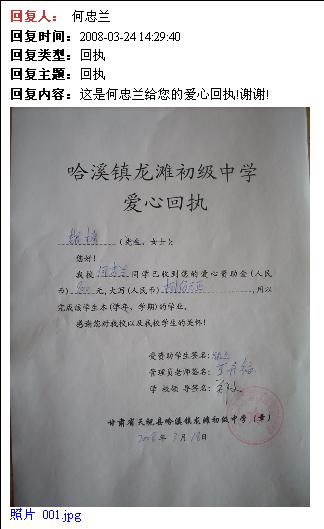 回复人： 何忠兰
回复时间：2008-03-24 14:29:40
回复类型：回执
回复主题：回执
回复内容：这是何忠兰给您的爱心回执!谢谢!
哈溪镇龙滩初级中学
爱心回执
（先生、女士）：
您好！
我校何忠兰同学已收到您的爱心资助金（人民
币） 元，大写（人民币） ，用以
完成该学生本（学年、学期）的学业。
感谢您对我校以及我校学生的关怀！
受资助学生签名：
管理员老师签名：
学校领导签名：
甘肃省天祝县哈溪镇龙滩初级中学（章）
2008年3月18日
照片 001.jpg